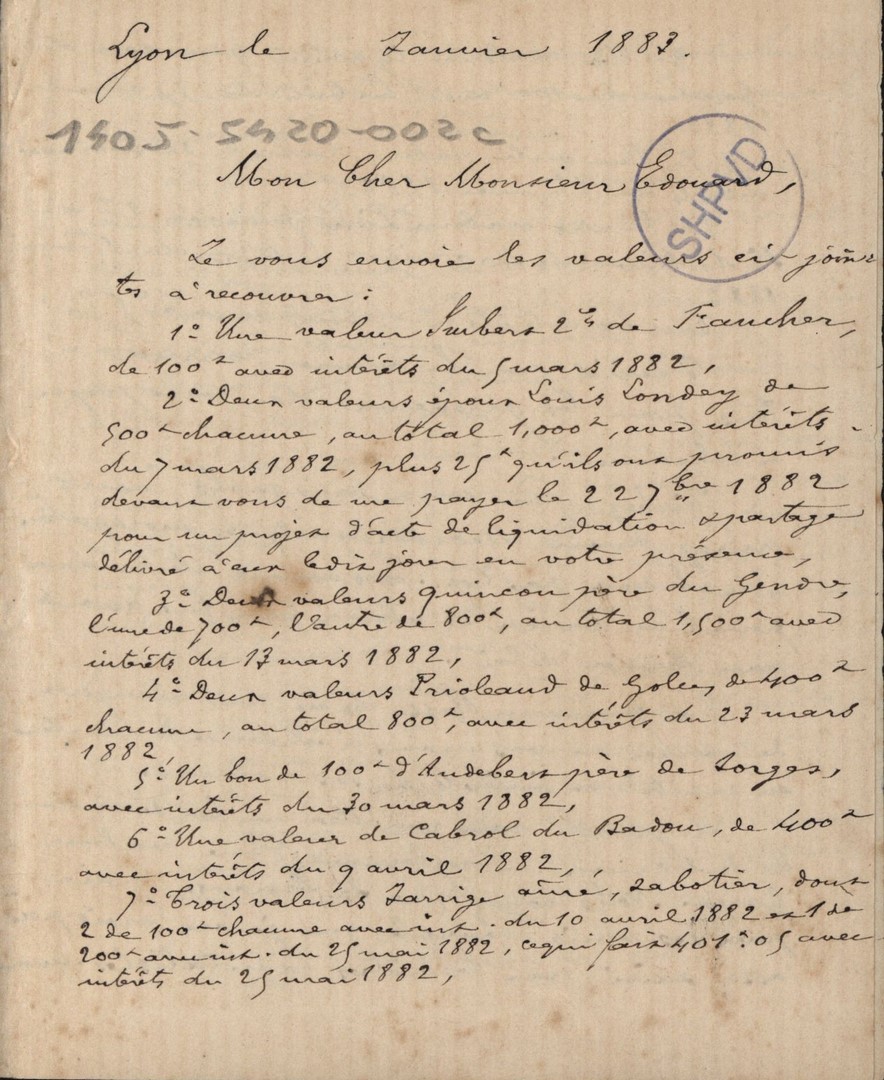 Lyon le Janvier 1883.
1405-5420-002c
SHPVD
Mon Cher Monsieur Edouard,
Je vous envoie les valeurs ci-join-
tes à recouvrer :
1° Une valeur Imbert de Faucher,
de 100f avec intérêts du 5 mars 1882,
2° Deux valeurs époux Louis Londey de
500f chacune, au total 1,000f, avec intérêts
du 7 mars 1882, plus 25f qu'ils ont promis
devant vous de me payer le 22 7bre 1882
pour un projet d'acte de liquidation & partage
délivré à eux ledit jour en votre présence,
3° Deux valeurs Quincou père du Gendre,
l'une de 700f, l'autre de 800f, au total 1,500f avec
intérêts du 13 mars 1882,
4° Deux valeurs Prioleaud de de 400f
chacune, au total 800f, avec intérêts du 23 mars
1882,
5° Un bon de 100f d'Audebert père de Sorges,
avec intérêts du 30 mars 1882,
6° Une valeur de Cabrol du Badou, de 400f
avec intérêts du 9 avril 1882,
7° Trois valeurs Jarrige aîné, sabotier, dont
2 de 100f chacune avec int. du 10 avril 1882 et 1 de
200f avec int. du 25 mai 1882, ce qui fait 401f.05 avec
intérêt du 25 mai 1882,